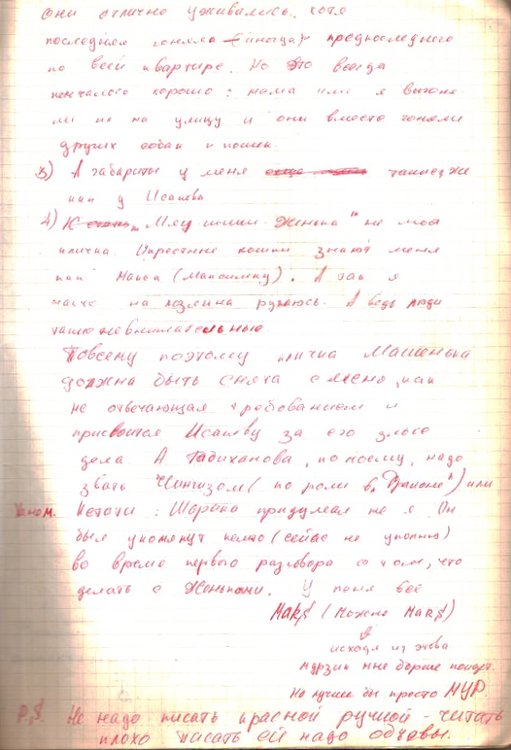 они отлично уживались, хотя
последняя гоняла (иногда) предпоследнего
по всей квартире. Но это всегда
кончалось хорошо: мама или я выгоня-
ли их на улицу и они вместе гоняли
других собак и кошек.
3) А габариты у меня такие же
как у Исаева
4) К "Мяу Женька" не моя
кличка. Окрестные кошки знают меня
как Макса (Максимку). А так я
на хозяина ругаюсь. А ведь люди
такие невнимательные
По всему поэтому кличка Машенька
должна быть снята с меня, как
не отвечающая требованием и
присвоится Исаеву за его злые
дела. А Тадиханова, по моему, надо
звать Чингизом (по роли в "Драконе") или
Кстати: Шарика придумал не я. Он
был упомянут кем-то (сейчас не упомню)
во время первого разговора о том, что
делать с Женькани. У меня всё
Макs (можно Maкs)
исходя из этова
Мурзик мне больше пойдет.
Но лучше бы просто МУР.
P.S. Не надо писать красной ручкой - читать
плохо писать ей надо